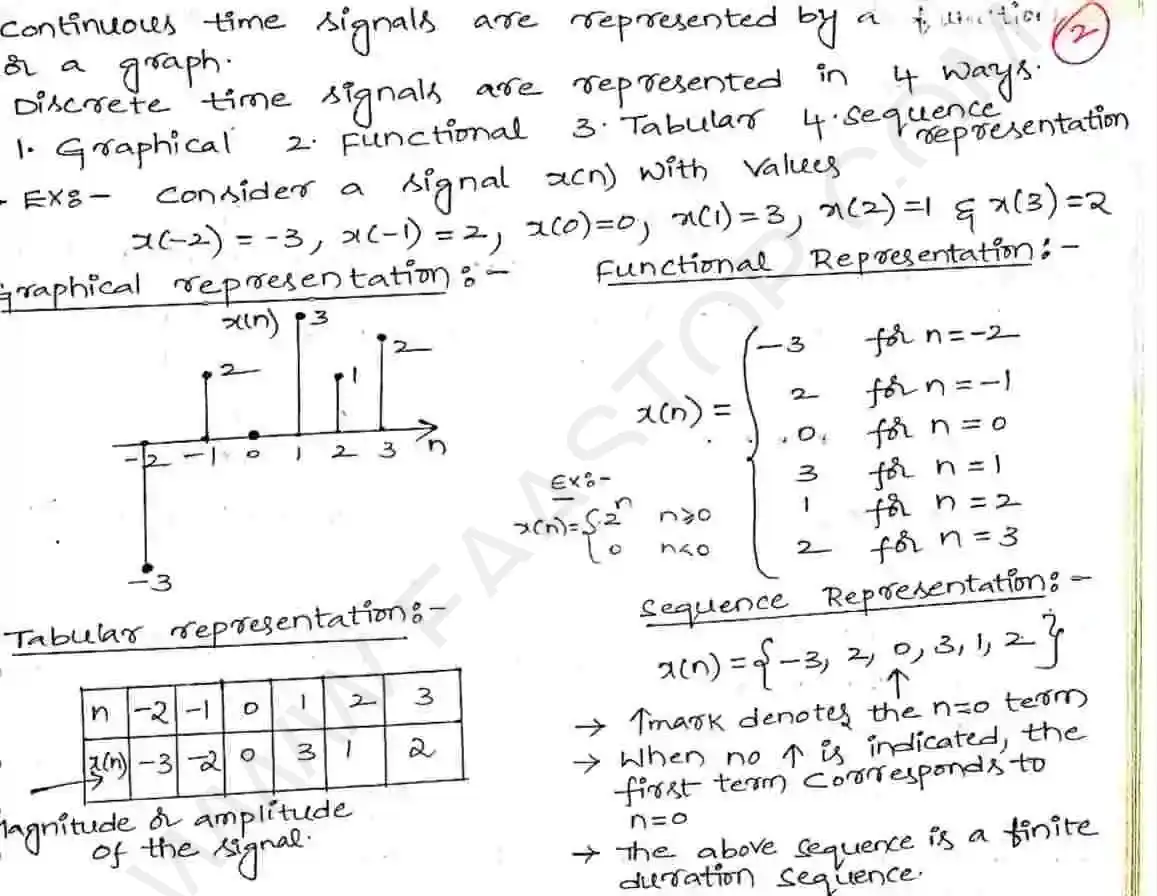 Continuous time signals are represented by a function
or a graph.
2
Discrete time signals are represented in 4 ways.
1. Graphical 2. Functional 3. Tabular 4. Sequence
representation
- EX:- Consider a signal x(n) with values
x(-2) = -3, x(-1) = 2, x(0)=0, x(1)=3, x(2)=1 & x(3)=2
Graphical representation:-
x(n)
3
2
2
1
-2 -1 0 1 2 3 n
-3
Functional Representation:-
x(n) = { -3 for n=-2
2 for n=-1
0 for n=0
3 for n=1
1 for n=2
2 for n=3
EX:-
x(n)={ 2^n n≥0
0 n<0
Tabular representation:-
n -2 -1 0 1 2 3
x(n) -3 -2 0 3 1 2
Magnitude or amplitude
of the signal.
Sequence Representation:-
x(n) = {-3, 2, 0, 3, 1, 2}
↑
→ ↑mark denotes the n=0 term
→ When no ↑ is indicated, the
first term corresponds to
n=0
→ The above sequence is a finite
duration sequence.
WWW.FAASTOP.COM